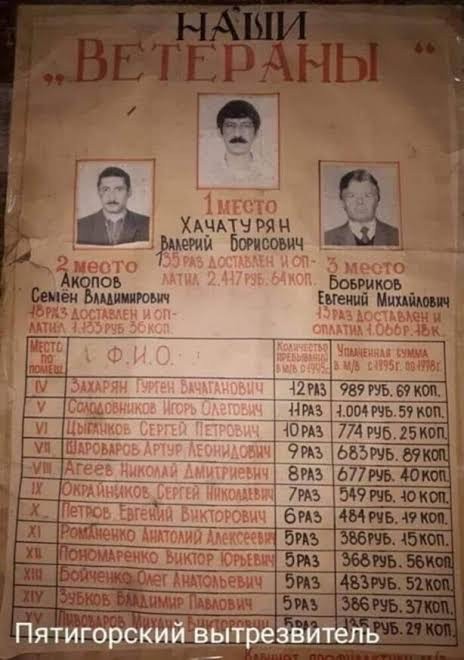 НАШИ
„ВЕТЕРАНЫ“
1 место
Хачатурян
Валерий Борисович
135 раз доставлен и оп-
латил 2.417 руб. 64 коп.
2 место
Акопов
Семён Владимирович
18 раз доставлен и оп-
латил 1.133 руб 56 коп.
3 место
Бобриков
Евгений Михайлович
13 раз доставлен и
оплатил 1.066 р. 18 к.
Место по помещ. Ф.И.О. Количество пребываний в м/в с 1995г. Уплаченная сумма в м/в с 1995г. по 1998г.
IV Захарян Гурген Вачаганович 12 раз 989 руб. 69 коп.
V Солодовников Игорь Олегович 11 раз 1.004 руб. 59 коп.
VI Цыганков Сергей Петрович 10 раз 774 руб. 25 коп.
VII Шароваров Артур Леонидович 9 раз 683 руб. 89 коп.
VIII Агеев Николай Дмитриевич 8 раз 677 руб. 40 коп.
IX Окрайников Сергей Николаевич 7 раз 549 руб. 10 коп.
X Петров Евгений Викторович 6 раз 484 руб. 19 коп.
XI Романенко Анатолий Алексеевич 5 раз 386 руб. 15 коп.
XII Пономаренко Виктор Юрьевич 5 раз 368 руб. 56 коп.
XIII Бойченко Олег Анатольевич 5 раз 483 руб. 52 коп.
XIV Зубков Владимир Павлович 5 раз 386 руб. 37 коп.
XV Пивоваров Михаил Викторович 5 раз 135 руб. 29 коп.
Пятигорский вытрезвитель
Кабинет профилактики